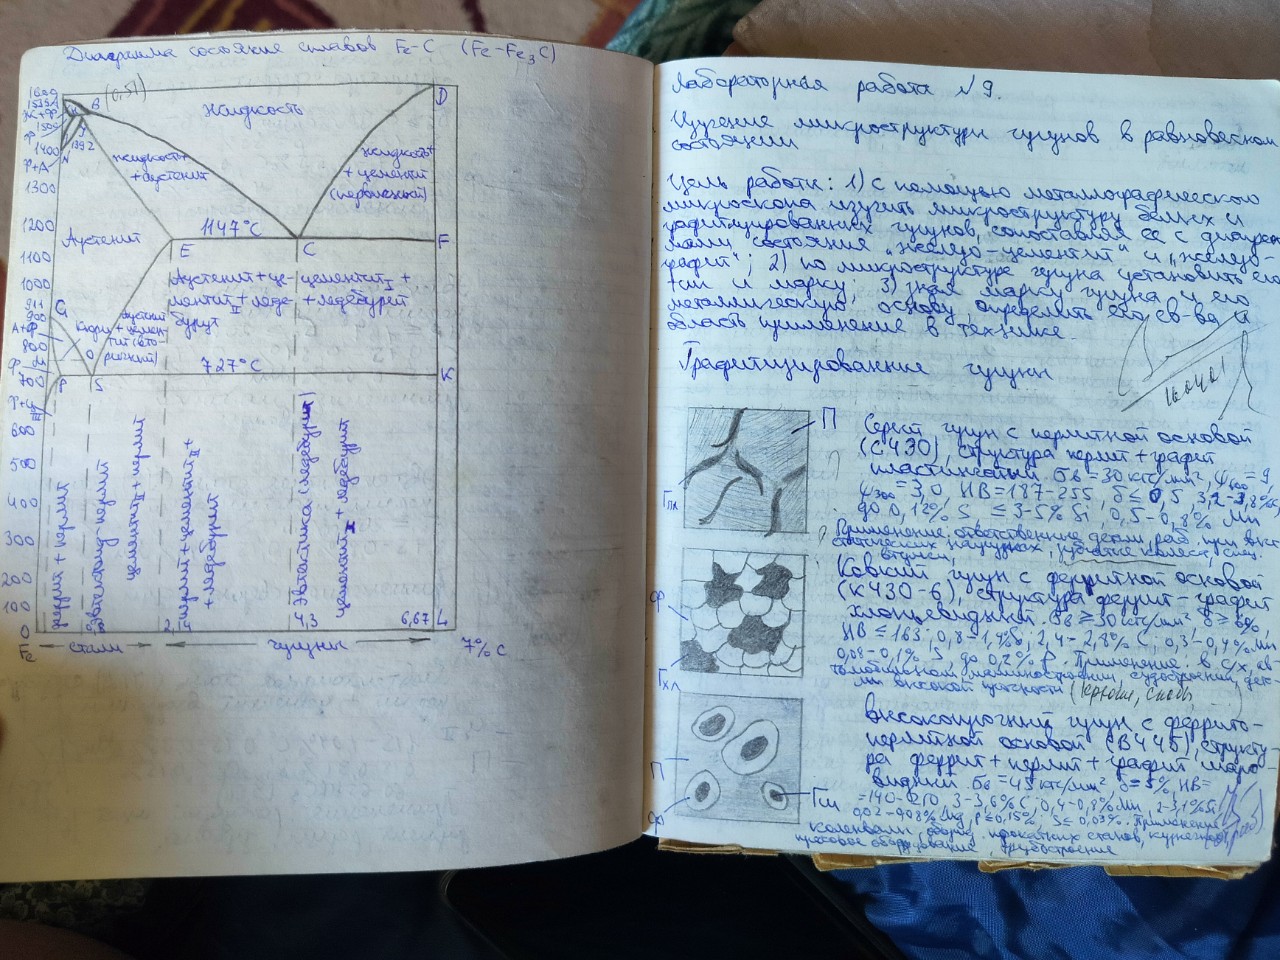 Диаграмма состояние сплавов Fe-C (Fe-Fe₃C)
1600
1539 A
Ж+Ф
1500
1400 N
Ф+А
1300
1200
1100
1000
911
900
А+Ф
800
700
600
500
400
300
200
100
0
Fe
B (0,51)
1392
Жидкость
D
жидкость + аустенит
жидкость + цемент (первичный)
Аустенит
1147°C
E
C
F
G
Аустенит+це-
мент II + леде-
бурут
цементит I +
+ ледебурит
аустенит
+ цемен-
тит (вто-
ричный)
727°C
P
S
K
феррит + перлит
Эвтектоид-перлит
цементит II + перлит
перлит+цементит II +
+ ледебурит
Эвтектика (ледебурит)
цементит I + ледебурит
2,
4,3
6,67
L
стали
чугуны
7% C
Лабораторная работа №9.
Изучение микроструктуры чугунов в равновесном
состоянии
Цель работы: 1) с помощью металлографического
микроскопа изучить микроструктуру белых и
графитизированных чугунов, сопоставляя ее с диаграм-
мами состояние "железо-цементит" и "железо-
графит"; 2) по микроструктуре чугуна установить его
тип и марку; 3) зная марку чугуна и его
металлическую основу, определить его св-ва и
область применение в технике.
Графитизированные чугуны
П
Гпл
Серый чугун с перлитной основой
(СЧ30), структура перлит + графит
пластинчатый. σв = 30 кгс/мм²,
НВ = 187-255, δ ≤ 0,5 3,2-3,8%
до 0,12% S ≤ 3-5% Si, 0,5-0,8% Mn
Применение: ответственные детали, раб. при выс.
статических нагрузках, зубчатые колеса,
Ф
Гхл
Ковкий чугун с ферритной основой
(КЧ30-6), структура феррит-графит
хлопьевидный. σв ≥ 30 кгс/мм² δ ≥ 6%,
НВ ≤ 163; 0,8-1,4% Si; 2,4-2,8% C; 0,3-0,4% Mn
0,08-0,1% S, до 0,2% P. Применение: в с/х, ав-
томобильном машиностроении, судостроении, дет-
ли высокой прочности (крюки, скобы)
П
Ф
Гш
Высокопрочный чугун с феррито-
перлитной основой (ВЧ45), структу-
ра феррит + перлит + графит шаро-
видный. σв = 45 кгс/мм² δ = 5%, НВ =
= 140-210 3-3,6% C; 0,4-0,8% Mn, 2-3,1% Si
0,02-0,08% Mg, P ≤ 0,15%, S ≤ 0,03%. Применение:
коленвалы, прокатных станов, кузнечно-
прессовое оборудование, трубостроение